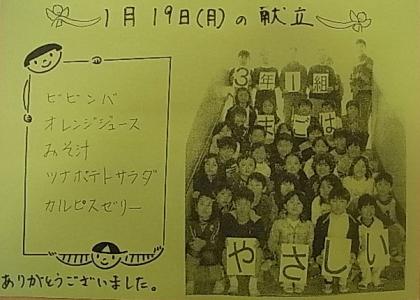 1月19日(月)の献立
ビビンバ
オレンジジュース
みそ汁
ツナポテトサラダ
カルピスゼリー
ありがとうございました。
3年1組
まごは
やさしい